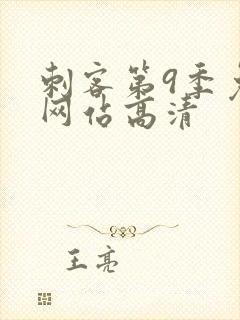 刺客第9季
网佔高清
王亮